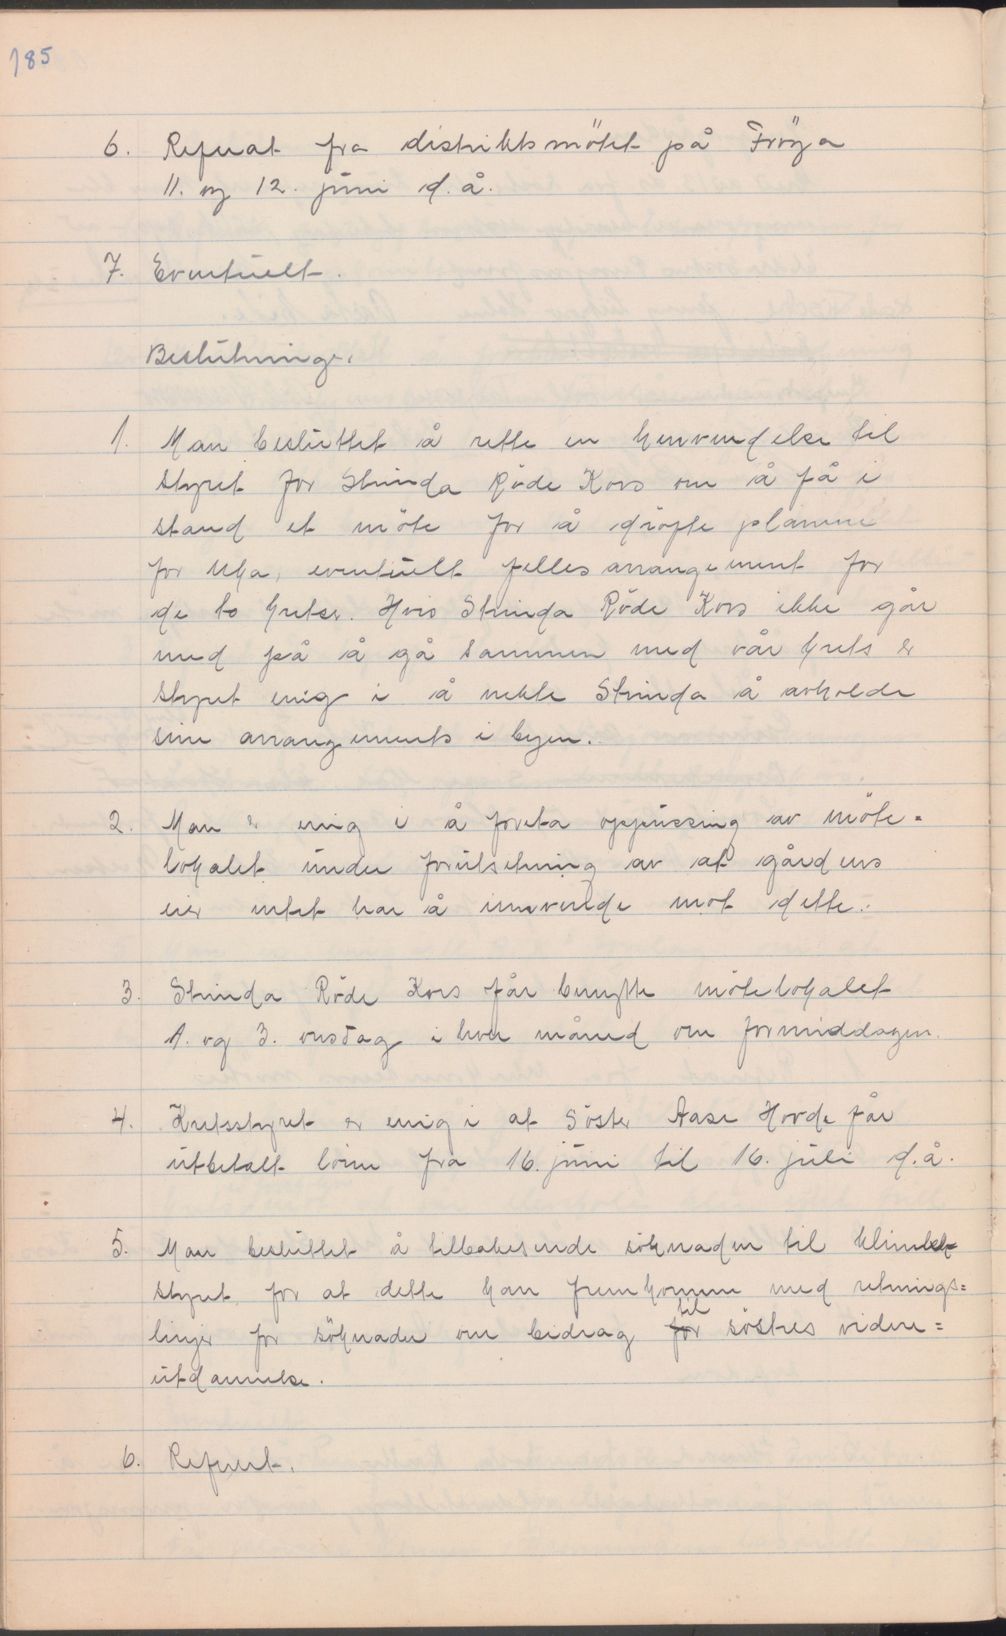 185
6. Referat fra distriktsmötet på Fröya
11. og 12. juni d.å.
7. Eventuelt.
Beslutninger.
1. Man besluttet å rette en henvendelse til
styret for Strinda Röde Kors om å få i
stand et möte for å dröfte planene
for Uka, eventuelt felles arrangement for
de to kretser. Hvis Strinda Röde Kors ikke går
med på å gå sammen med vår krets er
styret enig i å nekte Strinda å avholde
sine arrangements i byen.
2. Man er enig i å foreta oppussing av möte=
lokalet under forutsetning av at gårdens
eier intet har å innvende mot dette.
3. Strinda Röde Kors får benytte mötelokalet
1. og 3. onsdag i hver måned om formiddagen.
4. Kretsstyret er enig i at Söster Aase Hovde får
utbetalt lönn fra 16. juni til 16. juli d.å.
5. Man besluttet å tilbakesende söknaden til
styret for at dette kan fremkomme med retnings=
linjer for söknader om bidrag til söstres videre=
utdannelse.
6. Referert.